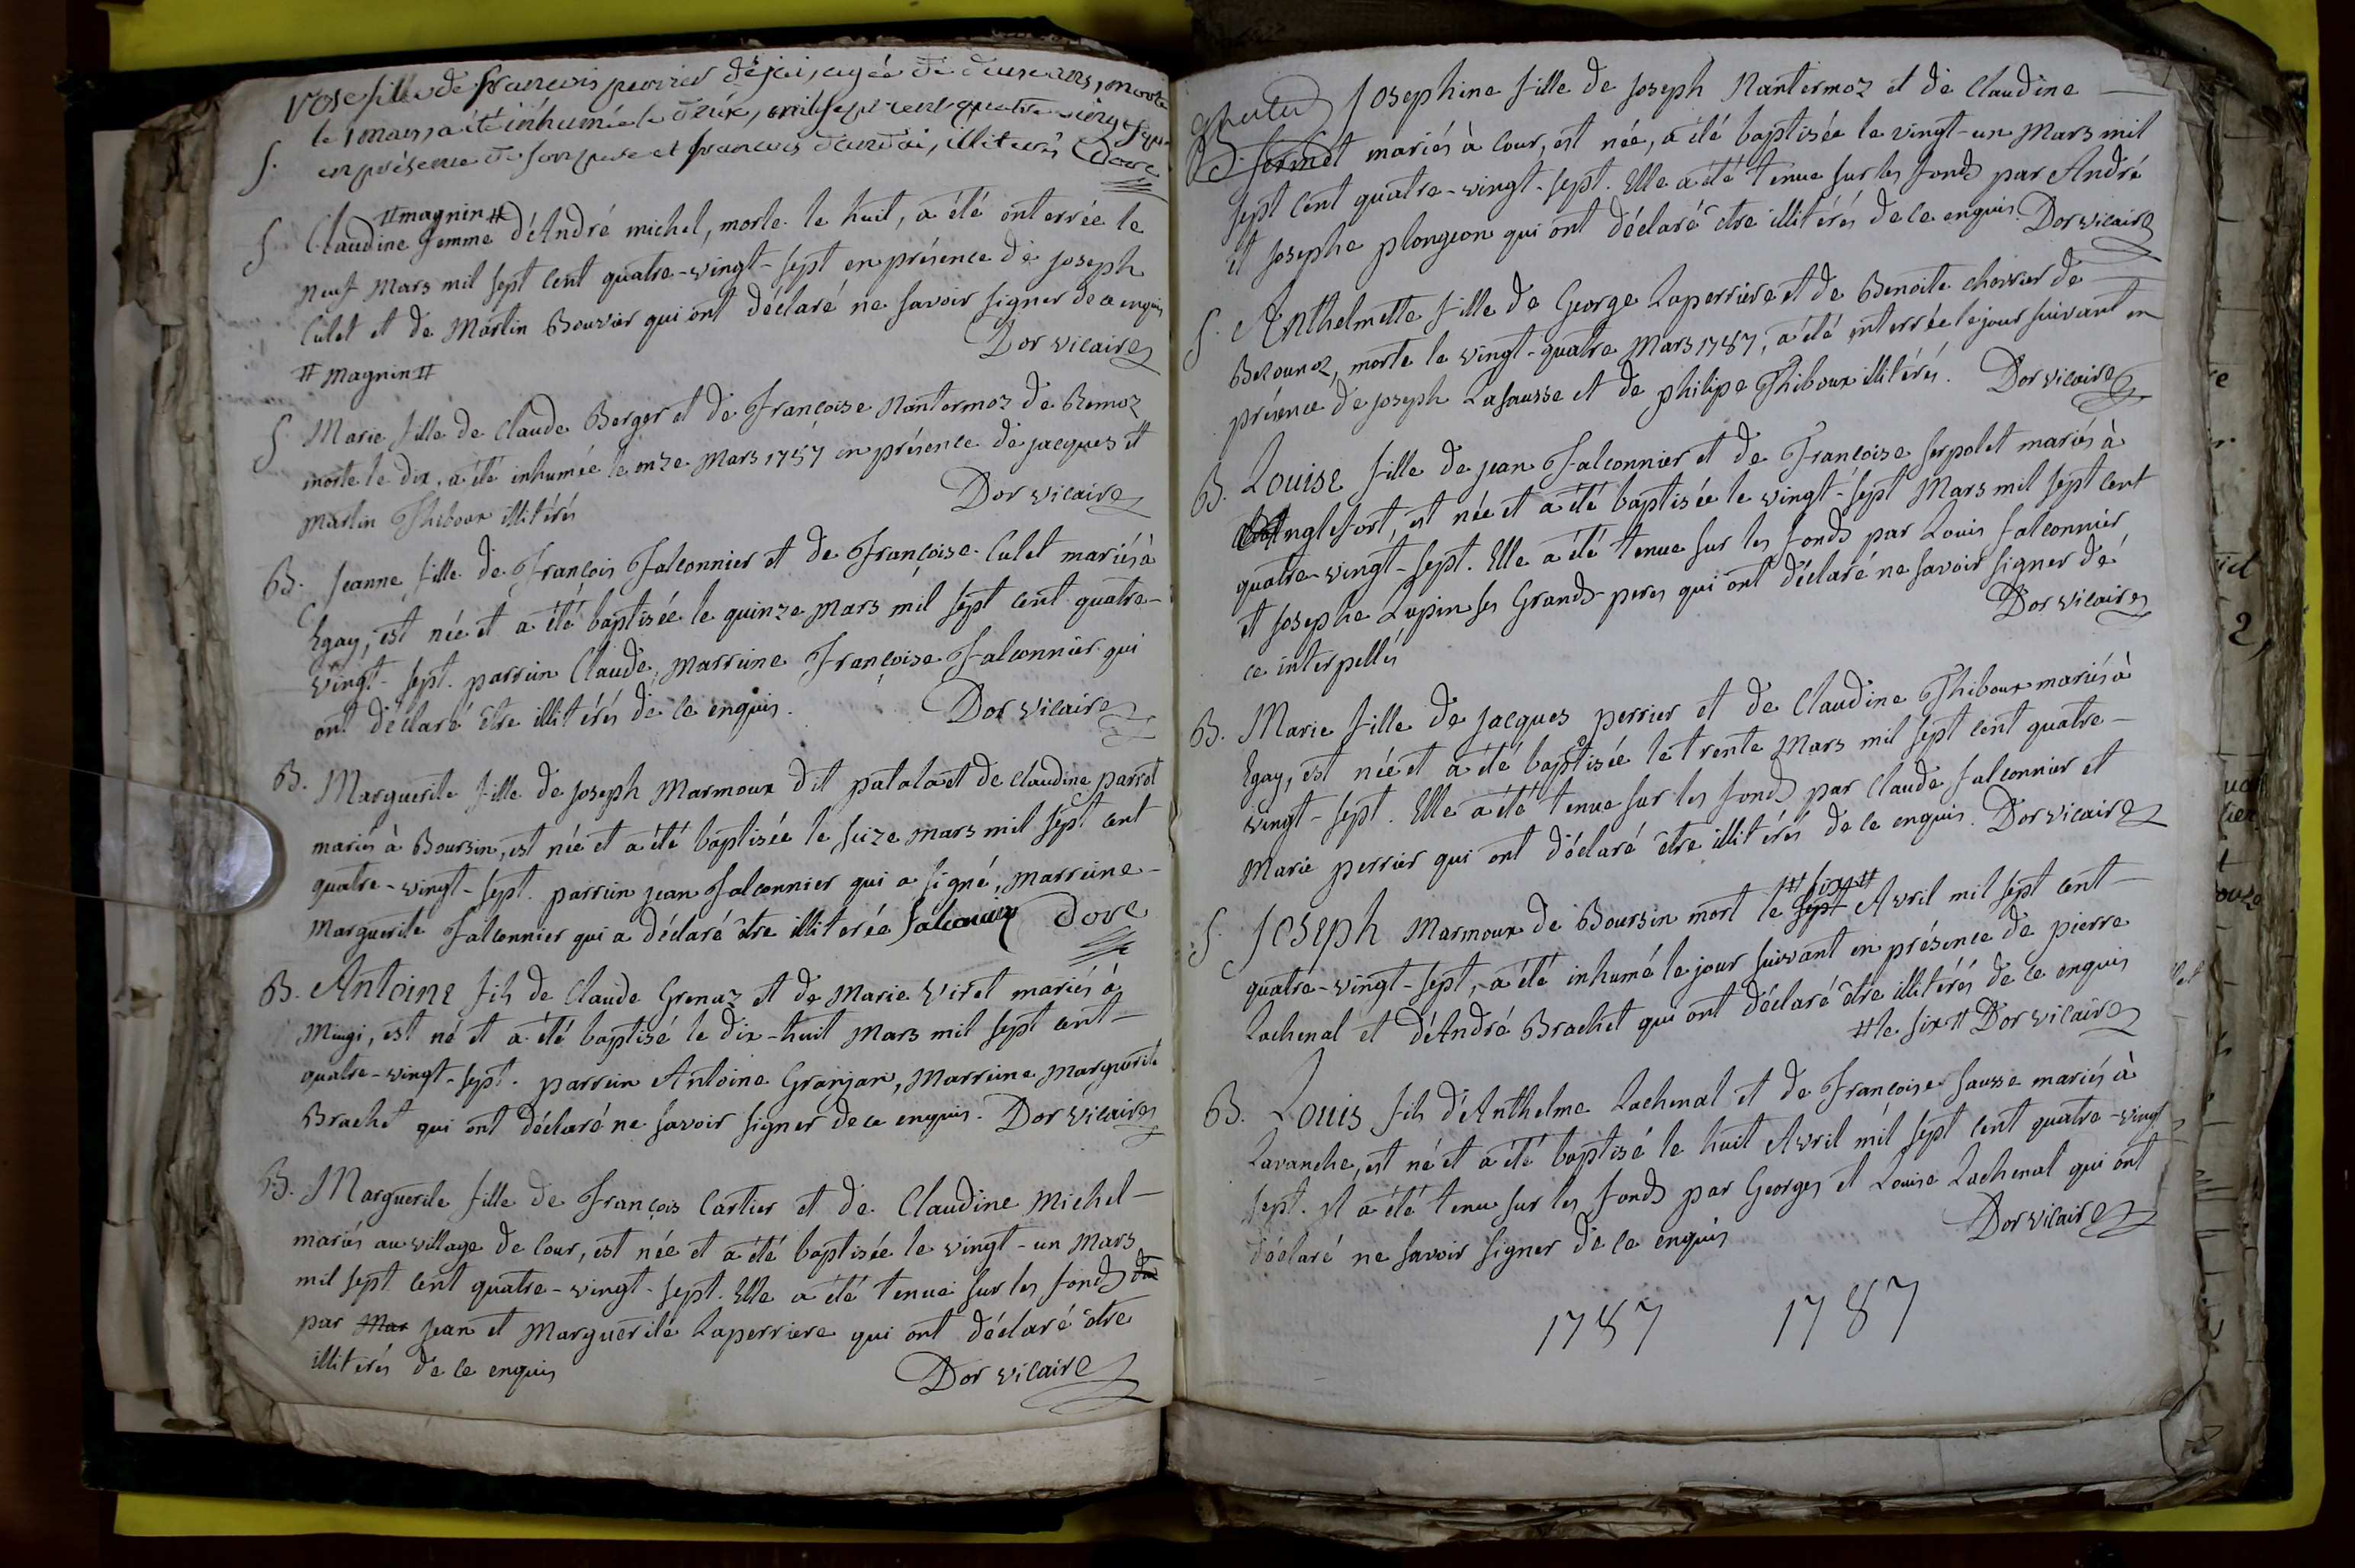 Rose fille de francois perrier d'ejai, agée de deux ans, morte
le 1 mars, a été inhumée le deux, mil sept cent quatre vingt sept
S. en présence de son pere et francois, illiterés Dore
#magnin#
S. Claudine femme d'André michel, morte le huit, a été enterrée le
neuf Mars mil sept cent quatre-vingt-sept en présence de joseph
Culet et de Martin Bouvier qui ont déclaré ne savoir signer de ce enquis
Dor vicaire
# magnin #
S. Marie fille de Claude Berger et de Françoise Nantermoz de Remoz
morte le dix, a été inhumée le onze Mars 1787 en présence de jacques et
Martin Thiboux illitérés Dor vicaire
B. Jeanne fille de François Falconnier et de Françoise Culet mariés à
Egay, est née et a été baptisée le quinze Mars mil sept cent quatre-
vingt-sept. parrein Claude, Marreine Françoise Falconnier qui
ont déclaré être illitérés de ce enquis. Dor vicaire
B. Marguerite fille de joseph Marmoux dit patala et de Claudine parrot
mariés à Boursin, est née et a été baptisée le seize mars mil sept cent
quatre-vingt-sept. parrein jean Falconnier qui a signé, Marreine-
Marguerite Falconnier qui a déclaré être illiterée falconier Dore
B. Antoine fils de Claude Grenaz et de Marie Viret mariés à
Mugi, est né et a été baptisé le dix-huit Mars mil sept cent-
quatre-vingt-sept. parrein Antoine Granjan, Marreine Marguerite
Brachet qui ont déclaré ne savoir signer de ce enquis. Dor Vicaire
B. Marguerite fille de François Cartier et de Claudine Michel-
mariés au village de Cour, est née et a été baptisée le vingt-un Mars
mil sept cent quatre-vingt-sept. Elle a été tenue sur les fonds de
par Mar jean et Marguerite Laperriere qui ont déclaré être
illitérés de ce enquis Dor vicaire
Josephine fille de joseph Nantermoz et de Claudine
B. mariés à Cour, est née, a été baptisée le vingt-un Mars mil
sept cent quatre-vingt-sept. Elle a été tenue sur les fonds par André
et Josephe plongeon qui ont déclaré être illitérés de ce enquis. Dor vicaire
S. Anthelmette fille de George Laperriere et de Benoite chevrier de
Bezounoz, morte le vingt-quatre Mars 1787, a été enterrée le jour suivant en
présence de joseph Lasausse et de philipe Thiboux illitérés. Dor vicaire
B. Louise fille de jean Falconnier et de Françoise Serpolet mariés à
Anglefort, est née et a été baptisée le vingt-sept Mars mil sept cent
quatre-vingt-sept. Elle a été tenue sur les fonds par Louis falconnier
et josephe Lupin ses Grands-peres qui ont déclaré ne savoir signer de
ce interpellés Dor vicaire
B. Marie fille de jacques perrier et de Claudine Thiboux mariés à
Egay, est née et a été baptisée le trente Mars mil sept cent quatre-
vingt-sept. Elle a été tenue sur les fonds par Claude falconnier et
Marie perrier qui ont déclaré être illitérés de ce enquis. Dor vicaire
#six#
S. Joseph Marmoux de Boursin mort le sept Avril mil sept cent-
quatre-vingt-sept, a été inhumé le jour suivant en présence de pierre
Lachenal et d'André Brachet qui ont déclaré être illitérés de ce enquis
#le six# Dor vicaire
B. Louis fils d'Anthelme Lachenal et de Françoise Sausse mariés à
Lavanche, est né et a été baptisé le huit Avril mil sept cent quatre-vingt
sept. Il a été tenu sur les fonds par Georges et Louise Lachenal qui ont
déclaré ne savoir signer de ce enquis Dor vicaire
1787 1787